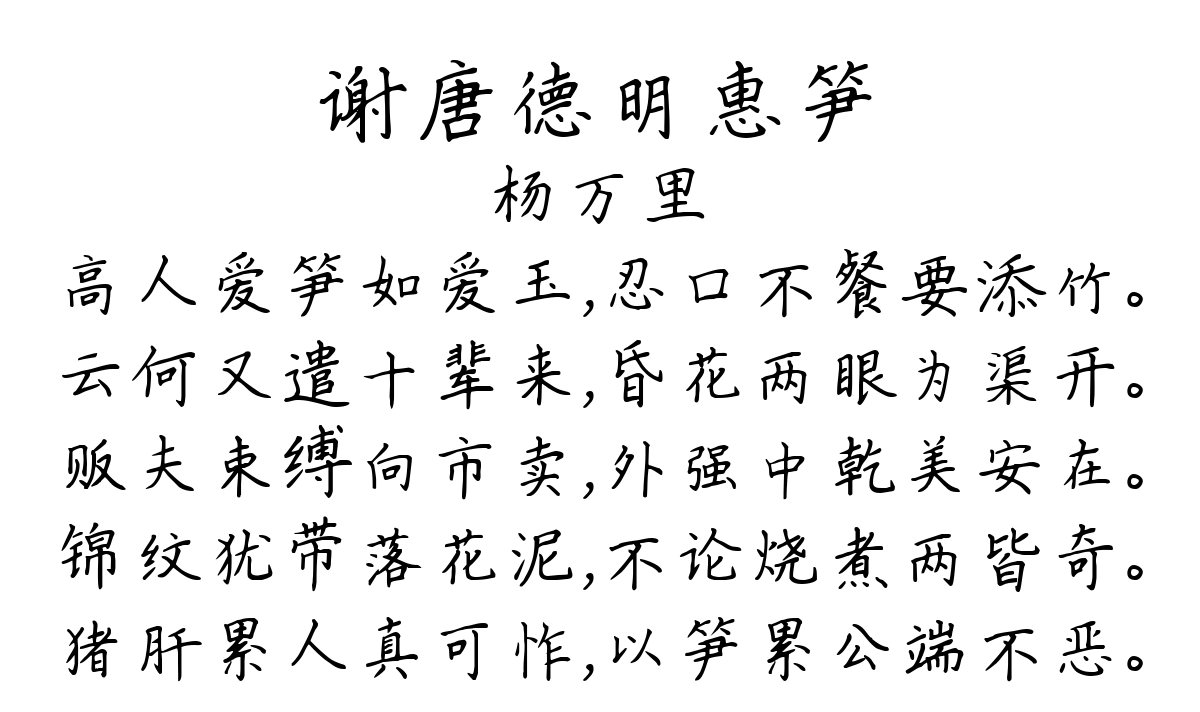 谢唐德明惠笋
杨万里
高人爱笋如爱玉,忍口不餐要添竹。
云何又遣十辈来,昏花两眼为渠开。
贩夫束缚向市卖,外强中乾美安在。
锦纹犹带落花泥,不论烧煮两皆奇。
猪肝累人真可怍,以笋累公端不恶。